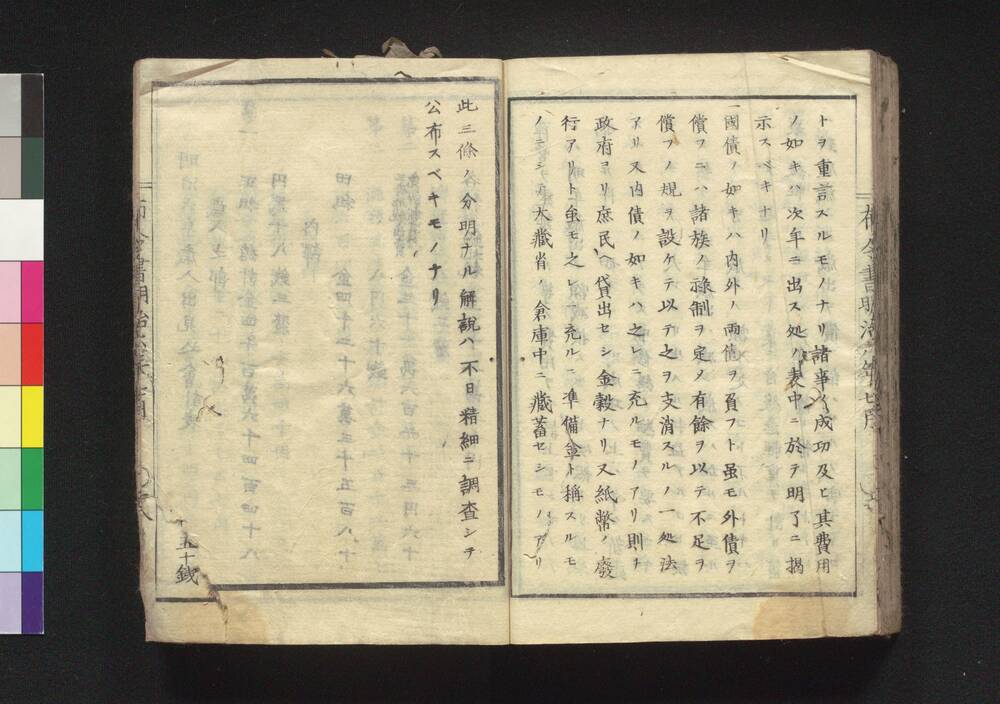 トヲ重言スルモノナリ諸事ノ成功及ヒ其費用
ノ如キハ次年ニ出ス処ノ表中ニ於テ明了ニ揭
示スベキナリ
一國債ノ如キハ内外ノ両債ヲ負フト虽モ外債ヲ
償フニハ諸族ノ祿制ヲ定メ有餘ヲ以テ不足ヲ
償フノ規ヲ設ケテ以テ之ヲ支消スルノ一処法
アリ又内債ノ如キハ之レニ充ルモノアリ則チ
政府ヨリ庶民ヘ貸出セシ金穀ナリ又紙幣ノ廢
行アリト虽モ之レニ充ルニ準備金ト稱スルモ
ノニシテ大藏省ノ倉庫中ニ藏蓄セシモノアリ
此三條ノ分明ナル解說ハ不日精細ニ調査シテ
公布スベキモノナリ
五十錢